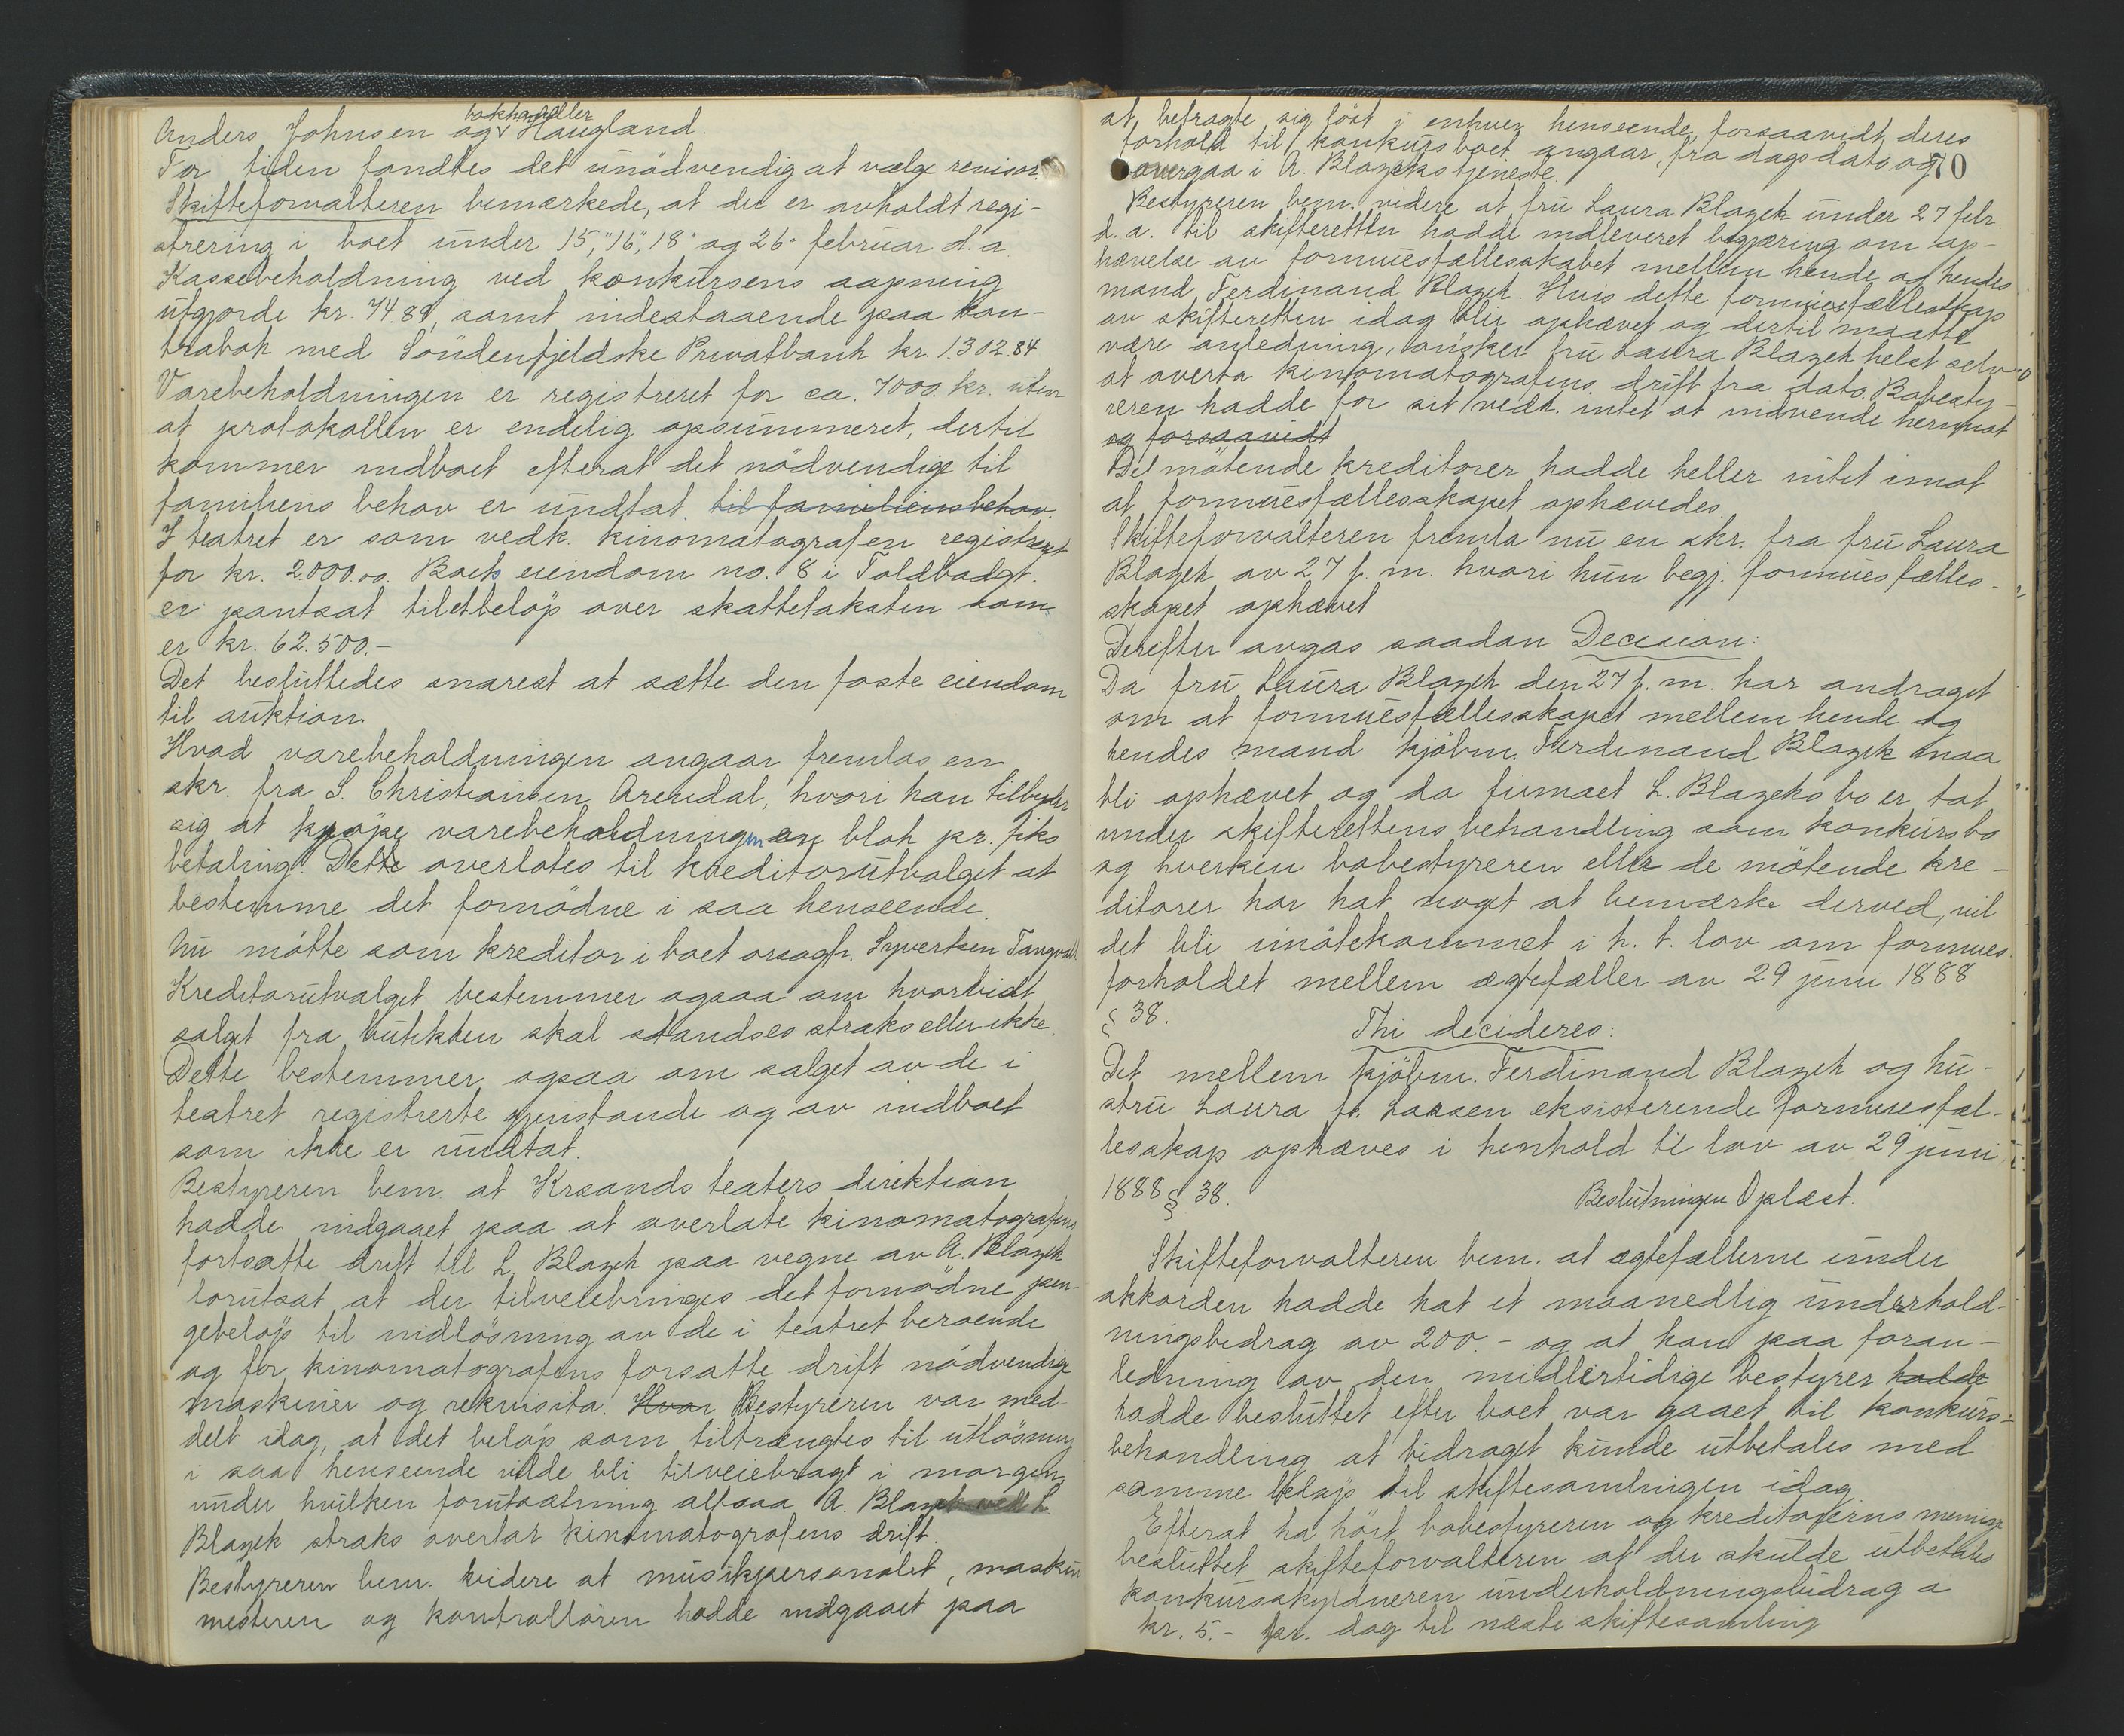 bokhandler
Anders Johnsen og Haugland.
For tiden fandtes det unödvendig at vælge revisor.
Skifteforvalteren bemærkede, at der er avholdt regi-
strering i boet under 15", 16", 18" og 26" februar d.a.
Kassebeholdning ved konkursens aapning
utgjorde kr. 74.89, samt indestaaende paa kon-
trabok med Söndenfjeldske Privatbank kr. 1302.84
Varebeholdningen er registreret for ca. 7000. kr. uten
at protokollen er endelig opsummeret, dertil
kommer indboet efterat det nödvendige til
familiens behov er undtat. til familiens behov.
I teatret er som vedk. kinomatografen registreret
for kr. 2.000.00. Boets eiendom no. 8 i Toldbodgt.
er pantsat til et belöp over skattetaksten som
er kr. 62.500.-
Det besluttedes snarest at sætte den faste eiendom
til auktion.
Hvad varebeholdningen angaar fremlas en
skr. fra S. Christiansen, Arendal, hvori han tilbyder
sig at kjöpe varebeholdningen en blok pr. fiks
betaling. Dette overlotes til kreditorutvalget at
bestemme det fornödne i saa henseende.
Nu mötte som kreditor i boet orsagf. Syvertsen Tangvald
Kreditorutvalget bestemmer ogsaa om hvorvidt
salget fra butikken skal standses straks eller ikke.
Dette bestemmer ogsaa om salget av de i
teatret registrerte gjenstande og av indboet
som ikke er undtat.
Bestyreren bem. at Krsands teaters direktion
hadde indgaaet paa at overlate kinomatografens
fortsatte drift til L. Blazek paa vegne av A. Blazek
forutsat at der tilveiebringes det fornödne pen-
gebelöp til indlösning av de i teatret beroende
og for kinomatografens forsatte drift nödvendige
maskiner og rekvisita. Hvor Bestyreren var med-
delt idag, at det belöp som tiltrængtes til utlösning
i saa henseende vilde bli tilveiebragt i morgen,
under hvilken forutsætning altsaa A. Blazek ved L.
Blazek straks overtar kinomatografens drift.
Bestyreren bem. videre at musikpersonalet, maskin-
mesteren og kontrollören hadde indgaaet paa
at betragte sig löst i enhver henseende, forsaavidt deres
forhold til konkursboet angaar, fra dags dato og
70
overgaa i A. Blazeks tjeneste.
Bestyreren bem. videre at fru Laura Blazek under 27 febr.
d.a. til skifteretten hadde indleveret begjæring om op-
hævelse av formuesfællesskabet mellem hende og hendes
mand, Ferdinand Blazek. Hvis dette formuesfællesskap
av skifteretten idag blir ophævet og dertil maatte
være anledning, önsker fru Laura Blazek helst selv
at overta kinomatografens drift fra dato. Bobesty-
reren hadde for sit vedk. intet at indvende herimot
og forsaavidt
De mötende kreditorer hadde heller intet imot
at formuesfællesskapet ophævedes.
Skifteforvalteren fremla nu en skr. fra fru Laura
Blazek av 27 f. m. hvori hun begj. formuesfælles-
skapet ophævet
Derefter avgas saadan Decision:
Da fru Laura Blazek den 27 f. m. har andraget
om at formuesfællesskapet mellem hende og
hendes mand kjöbm. Ferdinand Blazek maa
bli ophævet og da firmaet L. Blazeks bo er tat
under skifterettens behandling som konkursbo
og hverken bobestyreren eller de mötende kre-
ditorer har hat noget at bemærke derved, vil
det bli imötekommet i h. t. lov om formues-
forholdet mellem ægtefæller av 29 juni 1888
§ 38.
Thi decideres:
Det mellem kjöbm. Ferdinand Blazek og hu-
stru Laura f. Larsen eksisterende formuesfæl-
lesskap ophæves i henhold til lov av 29 juni
1888 § 38.
Beslutningen Oplæst.
Skifteforvalteren bem. at ægtefællerne under
akkorden hadde hat et maanedlig underhold-
ningsbidrag av 200.- og at han paa foran-
ledning av den midlertidige bestyrer hadde
hadde besluttet efter boet var gaaet til konkurs-
behandling at bidraget kunde utbetales med
samme belöp til skiftesamlingen idag.
Efterat ha hört bobestyreren og kreditorerns mening
besluttet skifteforvalteren at der skulde utbetales
konkursskyldneren underholdningsbidrag a
kr. 5.- pr. dag til næste skiftesamling